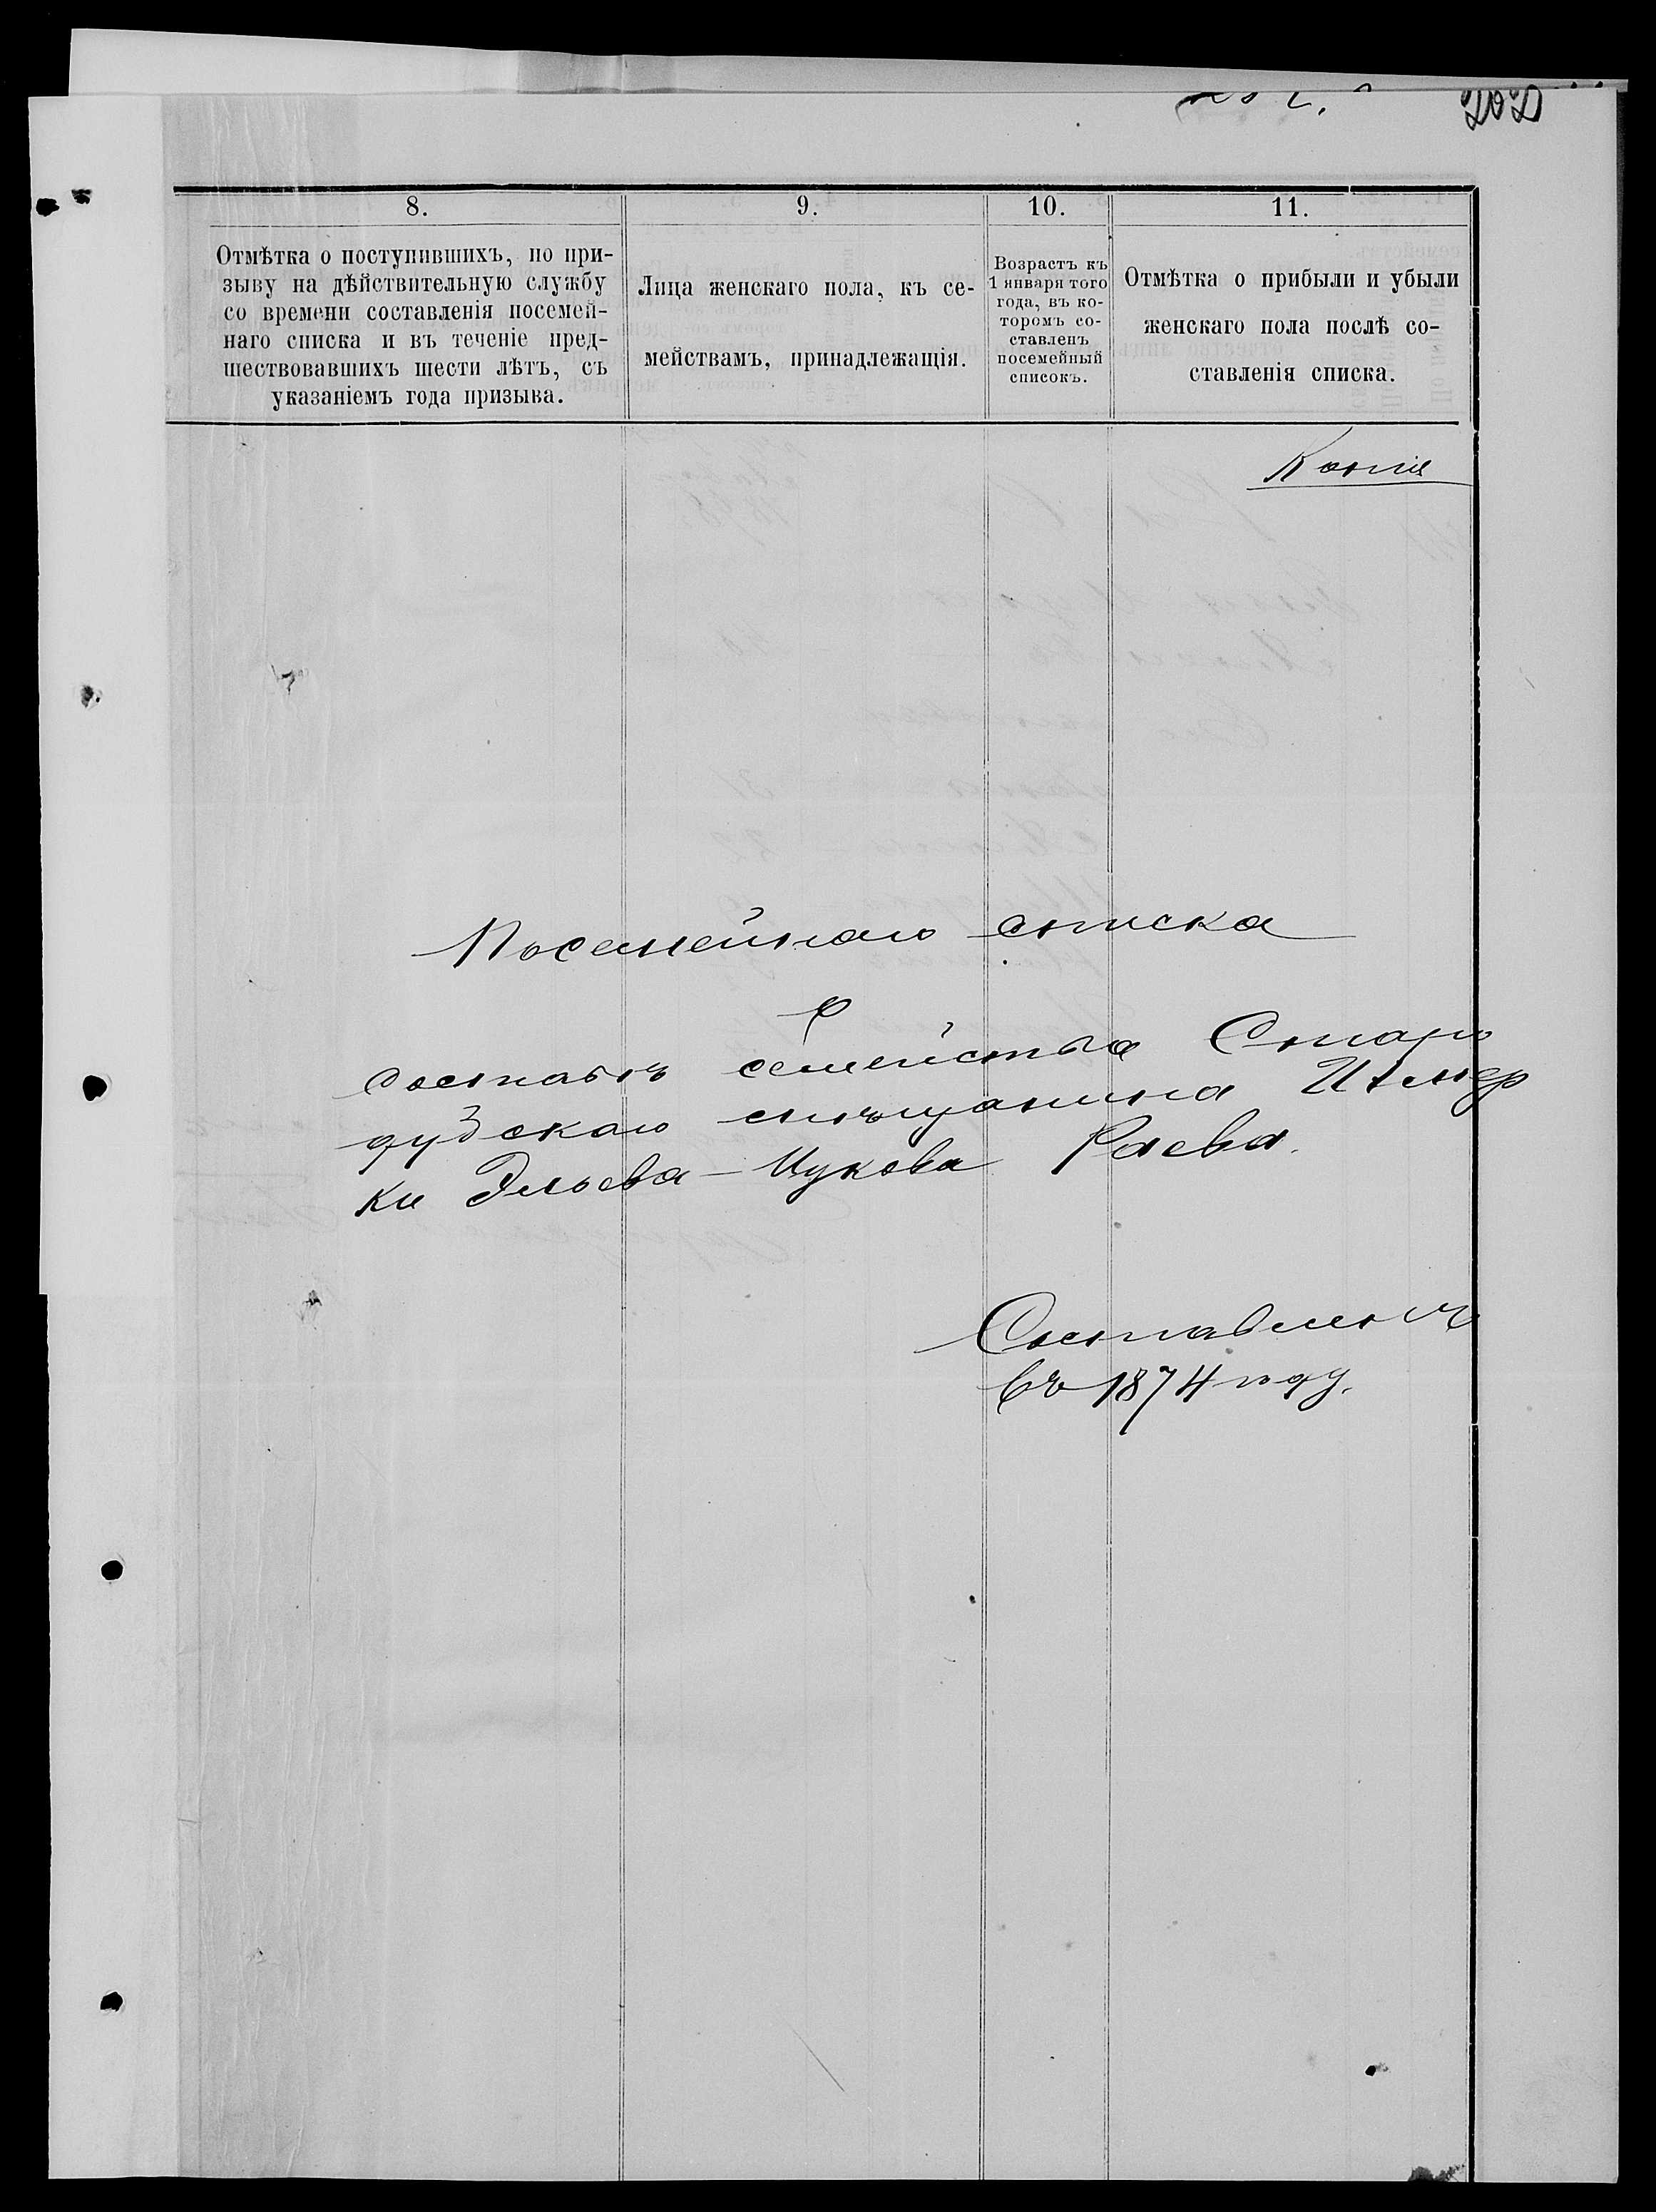 202
8.
Отмѣтка о поступившихъ, по при-
зыву на дѣйствительную службу
со времени составленія посемей-
наго списка и въ теченіе пред-
шествовавшихъ шести лѣтъ, съ
указаніемъ года призыва.
9.
Лица женскаго пола, къ се-
мействамъ, принадлежащія.
10.
Возрастъ къ
1 января того
года, въ ко-
торомъ со-
ставленъ
посемейный
списокъ.
11.
Отмѣтка о прибыли и убыли
женскаго пола послѣ со-
ставленія списка.
Копія
Посемейнаго списка
О
составѣ семейства Старо
дубскаго мѣщанина Ицко
ки Эльева-Цукова Раева.
Составленъ
въ 1874 году.